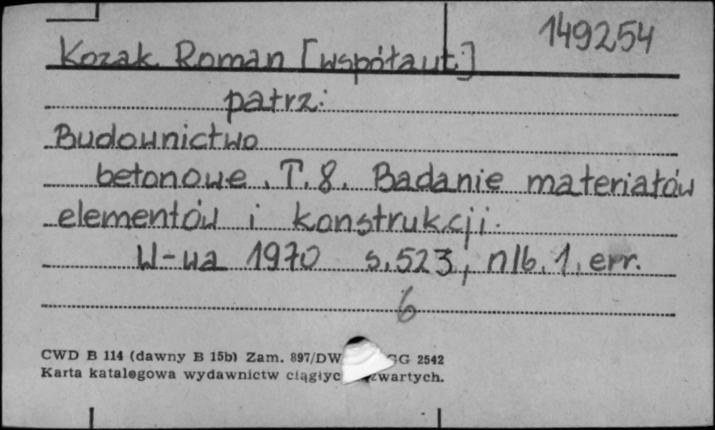 149254
Kozak Roman [współaut.]
patrz:
Budownictwo
betonowe. T. 8. Badanie materiałów
elementów i konstrukcji.
W-wa 1970 s. 523, nlb. 1, err.
6
CWD B 114 (dawny B 15b) Zam. 897/DW GG 2542
Karta katalogowa wydawnictw ciągłyc zwartych.